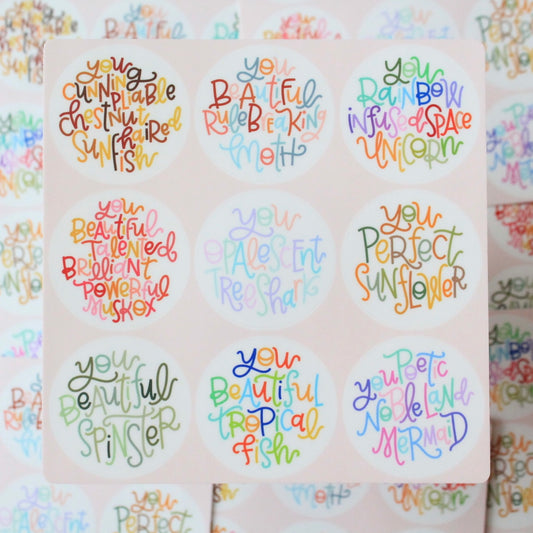 you
cunning
pliable
chestnut
haired
sunfish
you
Beautiful
RuleBreaking
Moth
you
Rainbow
infused space
unicorn
you
Beautiful
Talented
Brilliant
Powerful
Muskox
you
Opalescent
Tree Shark
you
Perfect
Sunflower
you
Beautiful
Spinster
you
Beautiful
Tropical
fish
you Poetic
Noble Land
Mermaid